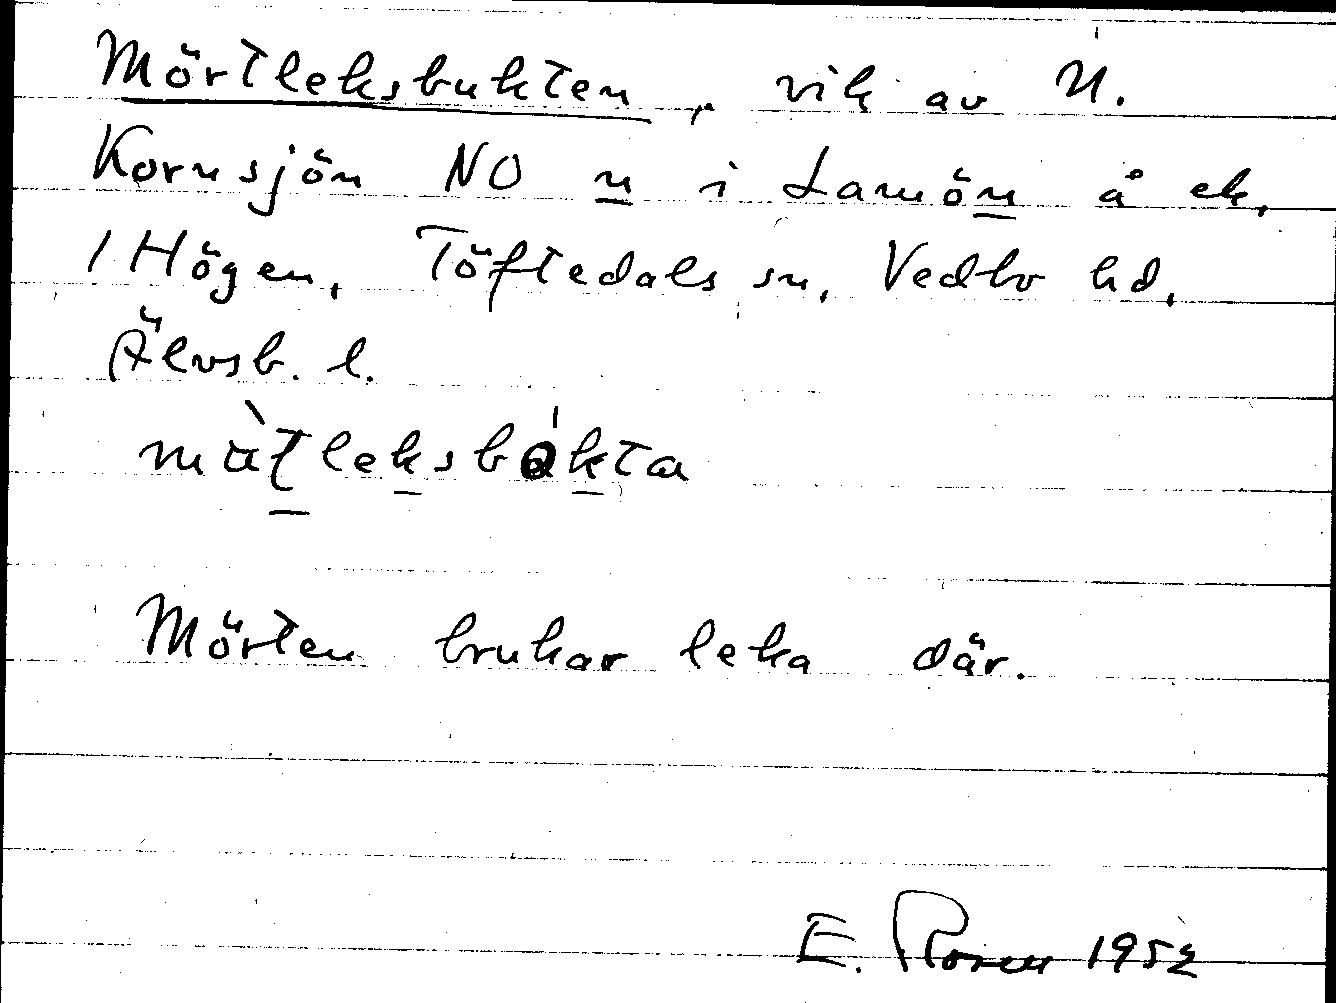 Mörtleksbukten, vik av N.
Kornsjön NO n i Lamön å ek.
1 Högen, Töftedals sn, Vedbo hd,
Älvsb. l.
Mörten brukar leka där.
E. Rosen 1952